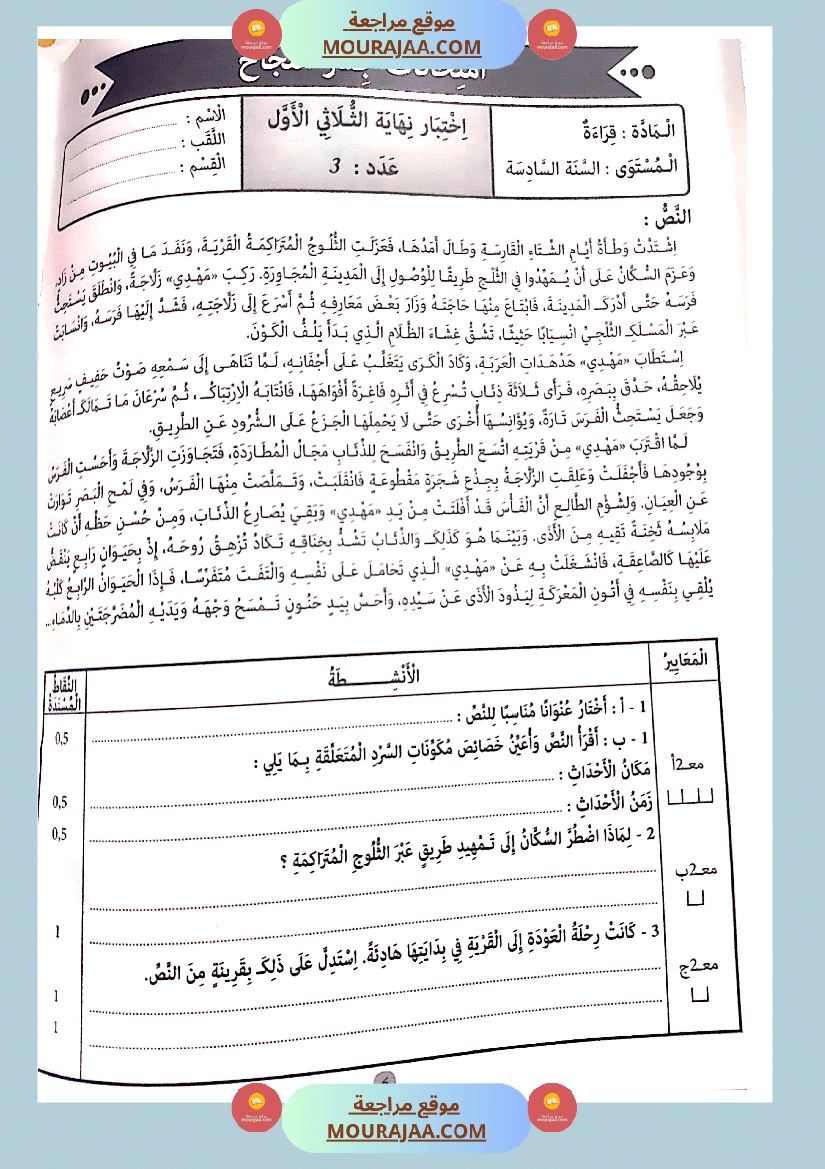 موقع مراجعة
MOURAJAA.COM
الْمَادَّة : قِرَاءَةٌ
الْمُسْتَوَى : السَّنَة السَّادِسَة
اِخْتِبَار نِهَايَة الثُّلَاثِي الْأَوَّل
عَدَد : 3
الْاسْم :
اللَّقَب :
الْقِسْم :
النَّصُّ :
اِشْتَدَّتْ وَطْأَةُ أَيَّامِ الشِّتَاءِ الْقَارِسَةِ وَطَالَ أَمَدُهَا، فَعَزَلَتِ الثُّلُوجُ الْمُتَرَاكِمَةُ الْقَرْيَةَ، وَنَفَدَ مَا فِي الْبُيُوتِ مِنْ زَادٍ،
وَعَزَمَ السُّكَّانُ عَلَى أَنْ يُمَهِّدُوا فِي الثَّلْجِ طَرِيقًا لِلْوُصُولِ إِلَى الْمَدِينَةِ الْمُجَاوِرَةِ. رَكِبَ «مَهْدِي» زَلَّاجَةً، وَانْطَلَقَ يَسْتَحِثُّ
فَرَسَهُ حَتَّى أَدْرَكَ الْمَدِينَةَ، فَابْتَاعَ مِنْهَا حَاجَتَهُ وَزَارَ بَعْضَ مَعَارِفِهِ ثُمَّ أَسْرَعَ إِلَى زَلَّاجَتِهِ، فَشَدَّ إِلَيْهَا فَرَسَهُ، وَانْسَابَتْ
عَبْرَ الْمَسْلَكِ الثَّلْجِيِّ انْسِيَابًا حَثِيثًا، تَشُقُّ غِشَاءَ الظَّلَامِ الَّذِي بَدَأَ يَلُفُّ الْكَوْنَ.
اِسْتَطَابَ «مَهْدِي» هَدْهَدَاتِ الْعَرَبَةِ، وَكَادَ الْكَرَى يَتَغَلَّبُ عَلَى أَجْفَانِهِ، لَمَّا تَنَاهَى إِلَى سَمْعِهِ صَوْتُ حَفِيفٍ سَرِيعٍ
يُلَاحِقُهُ، حَدَّقَ بِبَصَرِهِ، فَرَأَى ثَلَاثَةَ ذِئَابٍ تُسْرِعُ فِي أَثَرِهِ فَاغِرَةً أَفْوَاهَهَا، فَانْتَابَهُ الْارْتِبَاكُ، ثُمَّ سُرْعَانَ مَا تَمَالَكَ أَعْصَابَهُ
وَجَعَلَ يَسْتَحِثُّ الْفَرَسَ تَارَةً، وَيُؤَانِسُهَا أُخْرَى حَتَّى لَا يَحْمِلَهَا الْجَزَعُ عَلَى الشُّرُودِ عَنِ الطَّرِيقِ.
لَمَّا اقْتَرَبَ «مَهْدِي» مِنْ قَرْيَتِهِ اتَّسَعَ الطَّرِيقُ وَانْفَسَحَ لِلذِّئَابِ مَجَالُ الْمُطَارَدَةِ، فَتَجَاوَزَتِ الزَّلَّاجَةَ وَأَحَسَّتِ الْفَرَسُ
بِوُجُودِهَا فَأَجْفَلَتْ وَعَلِقَتِ الزَّلَّاجَةُ بِجِذْعِ شَجَرَةٍ مَقْطُوعَةٍ فَانْقَلَبَتْ، وَتَمَلَّصَتْ مِنْهَا الْفَرَسُ، وَفِي لَمْحِ الْبَصَرِ تَوَارَتْ
عَنِ الْعِيَانِ. وَلِشُؤْمِ الطَّالِعِ أَنَّ الْفَأْسَ قَدْ أَفْلَتَتْ مِنْ يَدِ «مَهْدِي» وَبَقِيَ يُصَارِعُ الذِّئَابَ، وَمِنْ حُسْنِ حَظِّهِ أَنْ كَانَتْ
مَلَابِسُهُ ثَخِنَةً تَقِيهِ مِنَ الْأَذَى. وَبَيْنَمَا هُوَ كَذَلِكَ وَالذِّئَابُ تَشُدُّ بِخِنَاقِهِ تَكَادُ تُزْهِقُ رُوحَهُ، إِذْ بِحَيَوَانٍ رَابِعٍ يَنْقَضُّ
عَلَيْهَا كَالصَّاعِقَةِ، فَانْشَغَلَتْ بِهِ عَنْ «مَهْدِي» الَّذِي تَحَامَلَ عَلَى نَفْسِهِ وَالْتَفَتَ مُتَفَرِّسًا، فَإِذَا الْحَيَوَانُ الرَّابِعُ كَلْبُهُ
يُلْقِي بِنَفْسِهِ فِي أَتُونِ الْمَعْرَكَةِ لِيَذُودَ الْأَذَى عَنْ سَيِّدِهِ، وَأَحَسَّ بِيَدٍ حَنُونٍ تَمْسَحُ وَجْهَهُ وَيَدَيْهِ الْمُضَرَّجَتَيْنِ بِالدِّمَاءِ...
الْمَعَايِيرُ
الْأَنْشِطَةُ
النِّقَاطُ الْمُسْنَدَةُ
1 - أ : أَخْتَارُ عُنْوَانًا مُنَاسِبًا لِلنَّصِّ :
0,5
1 - ب : أَقْرَأُ النَّصَّ وَأُعَيِّنُ خَصَائِصَ مُكَوِّنَاتِ السَّرْدِ الْمُتَعَلِّقَةِ بِمَا يَلِي :
مَكَانُ الْأَحْدَاثِ :
0,5
معـ2أ
زَمَنُ الْأَحْدَاثِ :
0,5
2 - لِمَاذَا اضْطُرَّ السُّكَّانُ إِلَى تَمْهِيدِ طَرِيقٍ عَبْرَ الثُّلُوجِ الْمُتَرَاكِمَةِ ؟
معـ2ب
1
3 - كَانَتْ رِحْلَةُ الْعَوْدَةِ إِلَى الْقَرْيَةِ فِي بِدَايَتِهَا هَادِئَةً. اِسْتَدِلَّ عَلَى ذَلِكَ بِقَرِينَةٍ مِنَ النَّصِّ.
معـ2ج
1
1
موقع مراجعة
MOURAJAA.COM